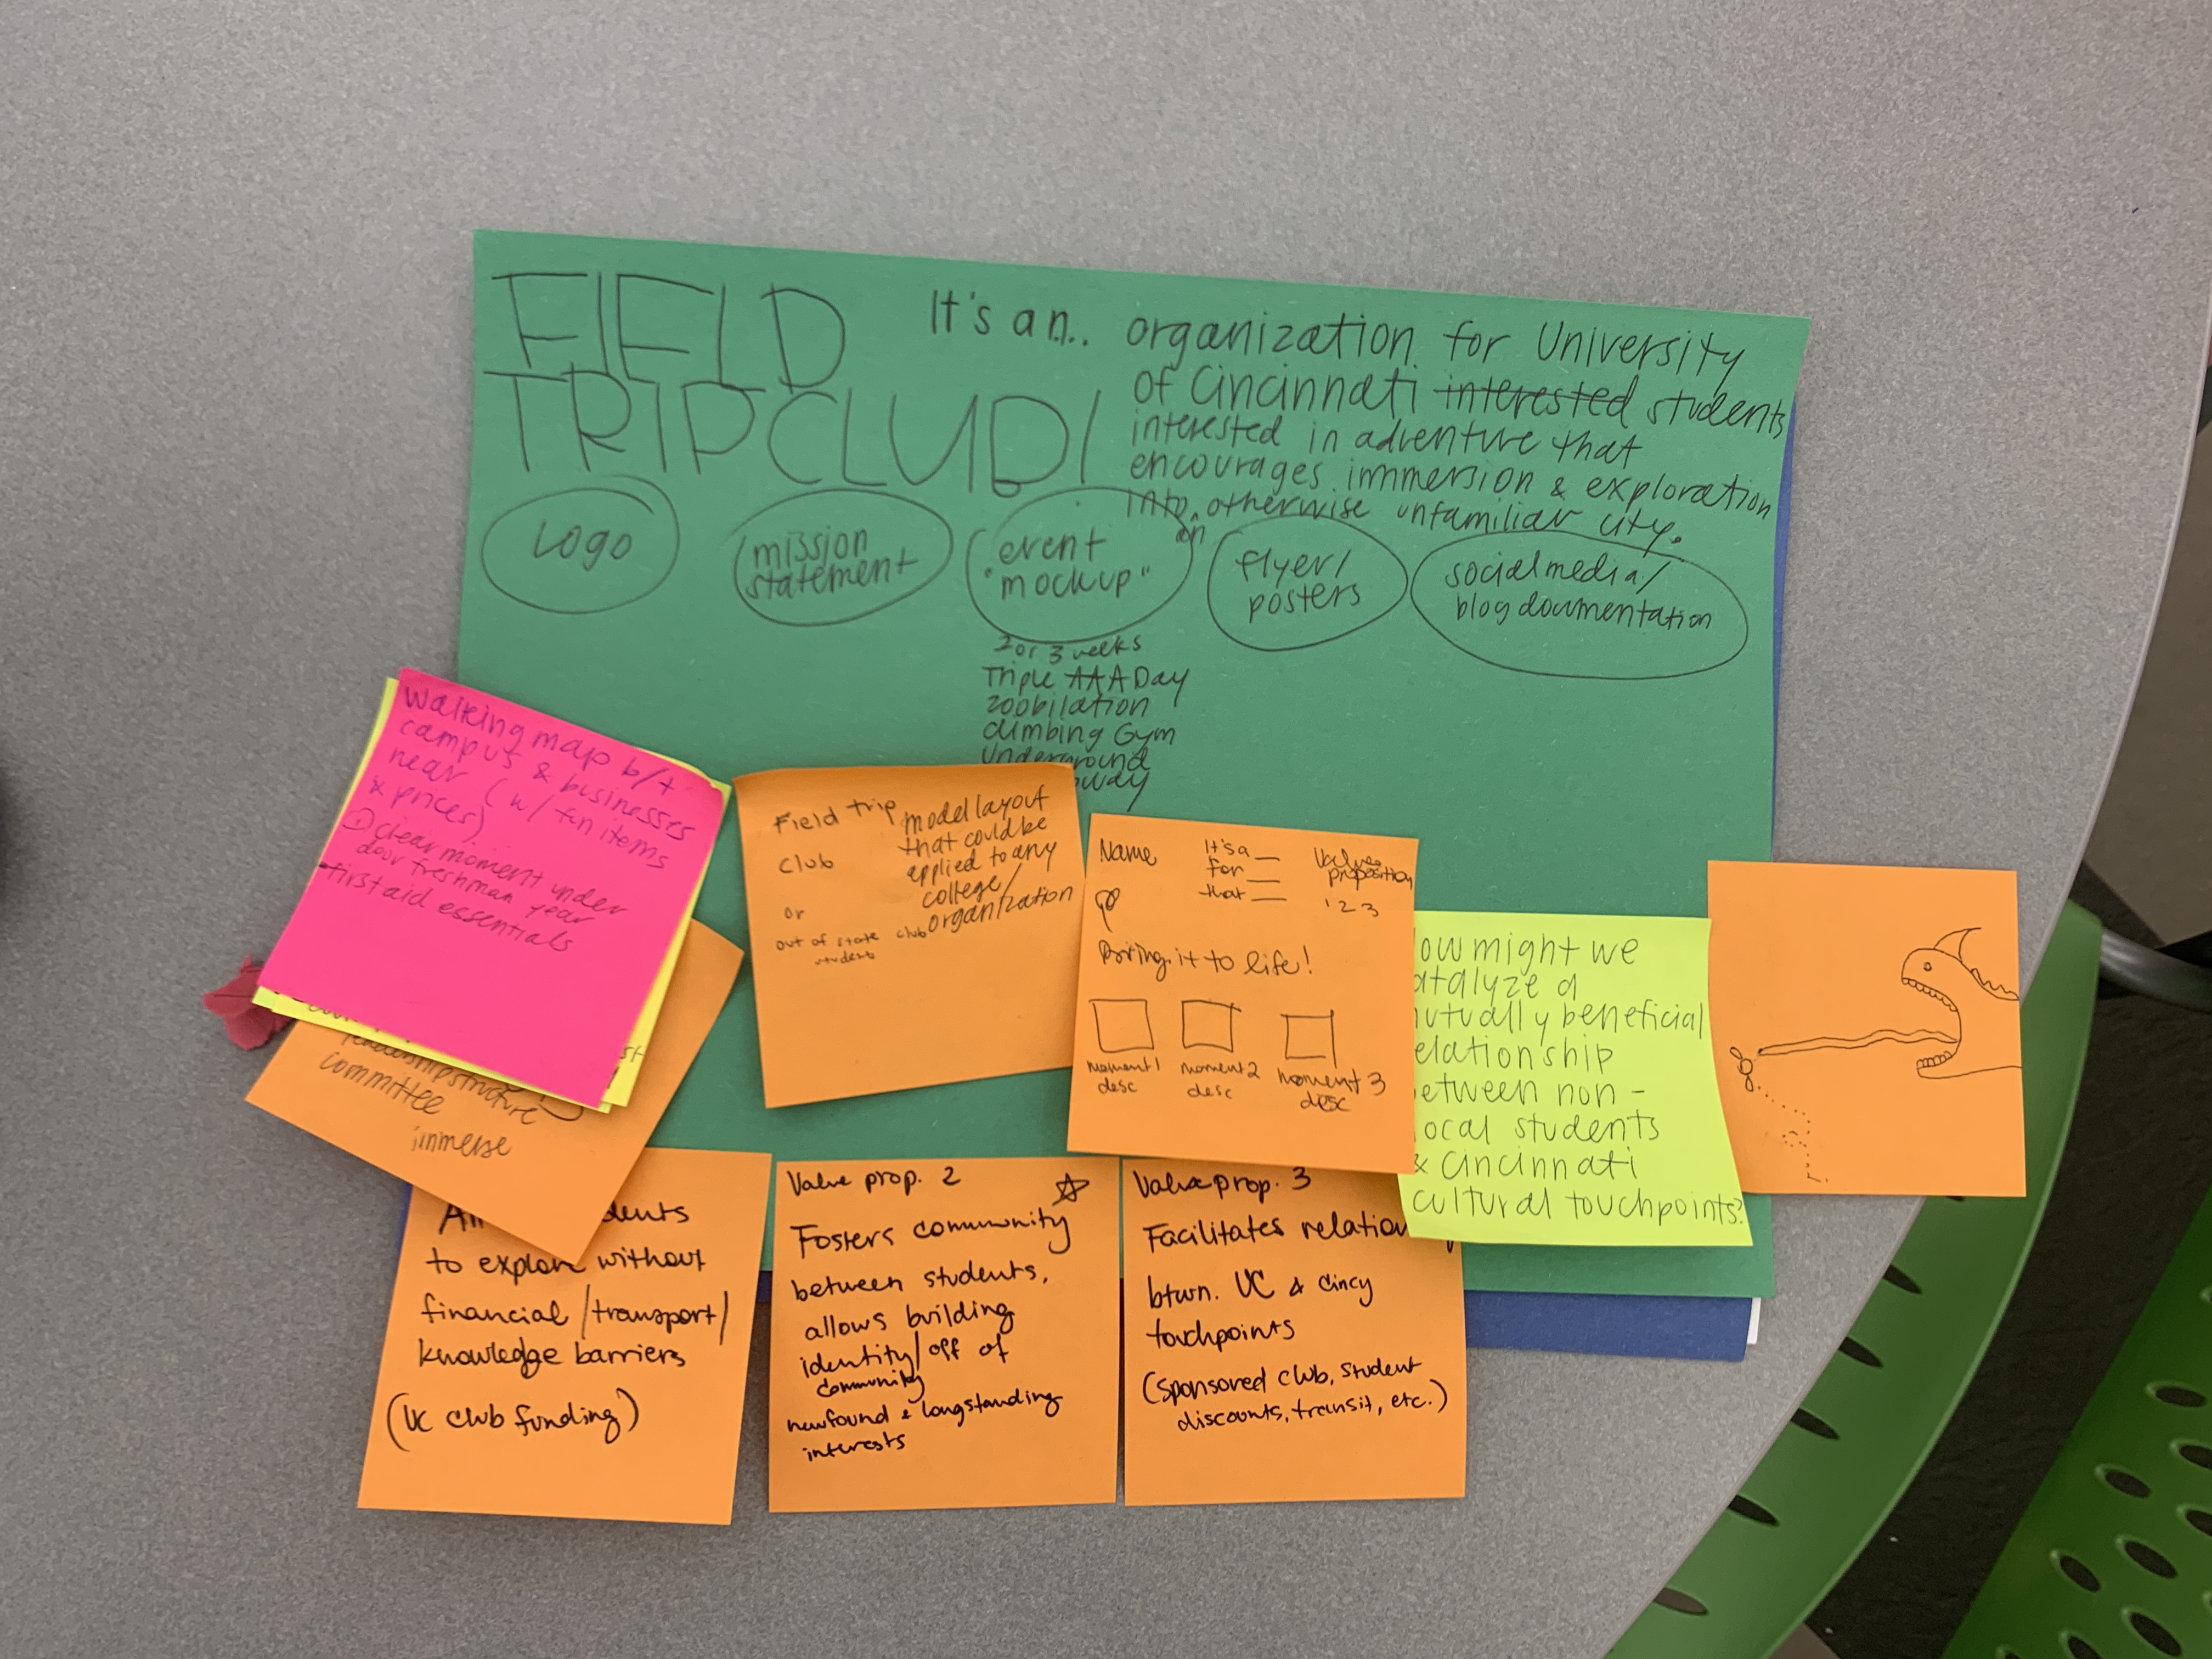 FIELD
TRIP CLUB!
It's an... organization for University
of Cincinnati interested students
interested in adventure that
encourages immersion & exploration
into an otherwise unfamiliar city.
Logo
mission
statement
event
"mockup"
flyer/
posters
social media/
blog documentation
2 or 3 weeks
Triple AAA Day
zoobilation
climbing Gym
underground
Walking map b/t
campus & businesses
near (w/ fun items
& prices)
① clear moment under
door freshman year
-first aid essentials
structure
committee
immerse
Field trip
club
or
out of state club
students
model layout
that could be
applied to any
college/
organization
Name
It's a __
for __
that __
Value
proposition
1 2 3
Bring it to life!
moment 1
desc
moment 2
desc
moment 3
desc
ow might we
atalyze a
utually beneficial
elationship
etween non-
ocal students
& cincinnati
cultural touchpoints?
dents
to explore without
financial/transport/
knowledge barriers
(UC club funding)
Value prop. 2
Fosters community
between students,
allows building
identity/off of
community
newfound & longstanding
interests
Value prop. 3
Facilitates relation
btwn. UC & Cincy
touchpoints
(sponsored club, student
discounts, transit, etc.)